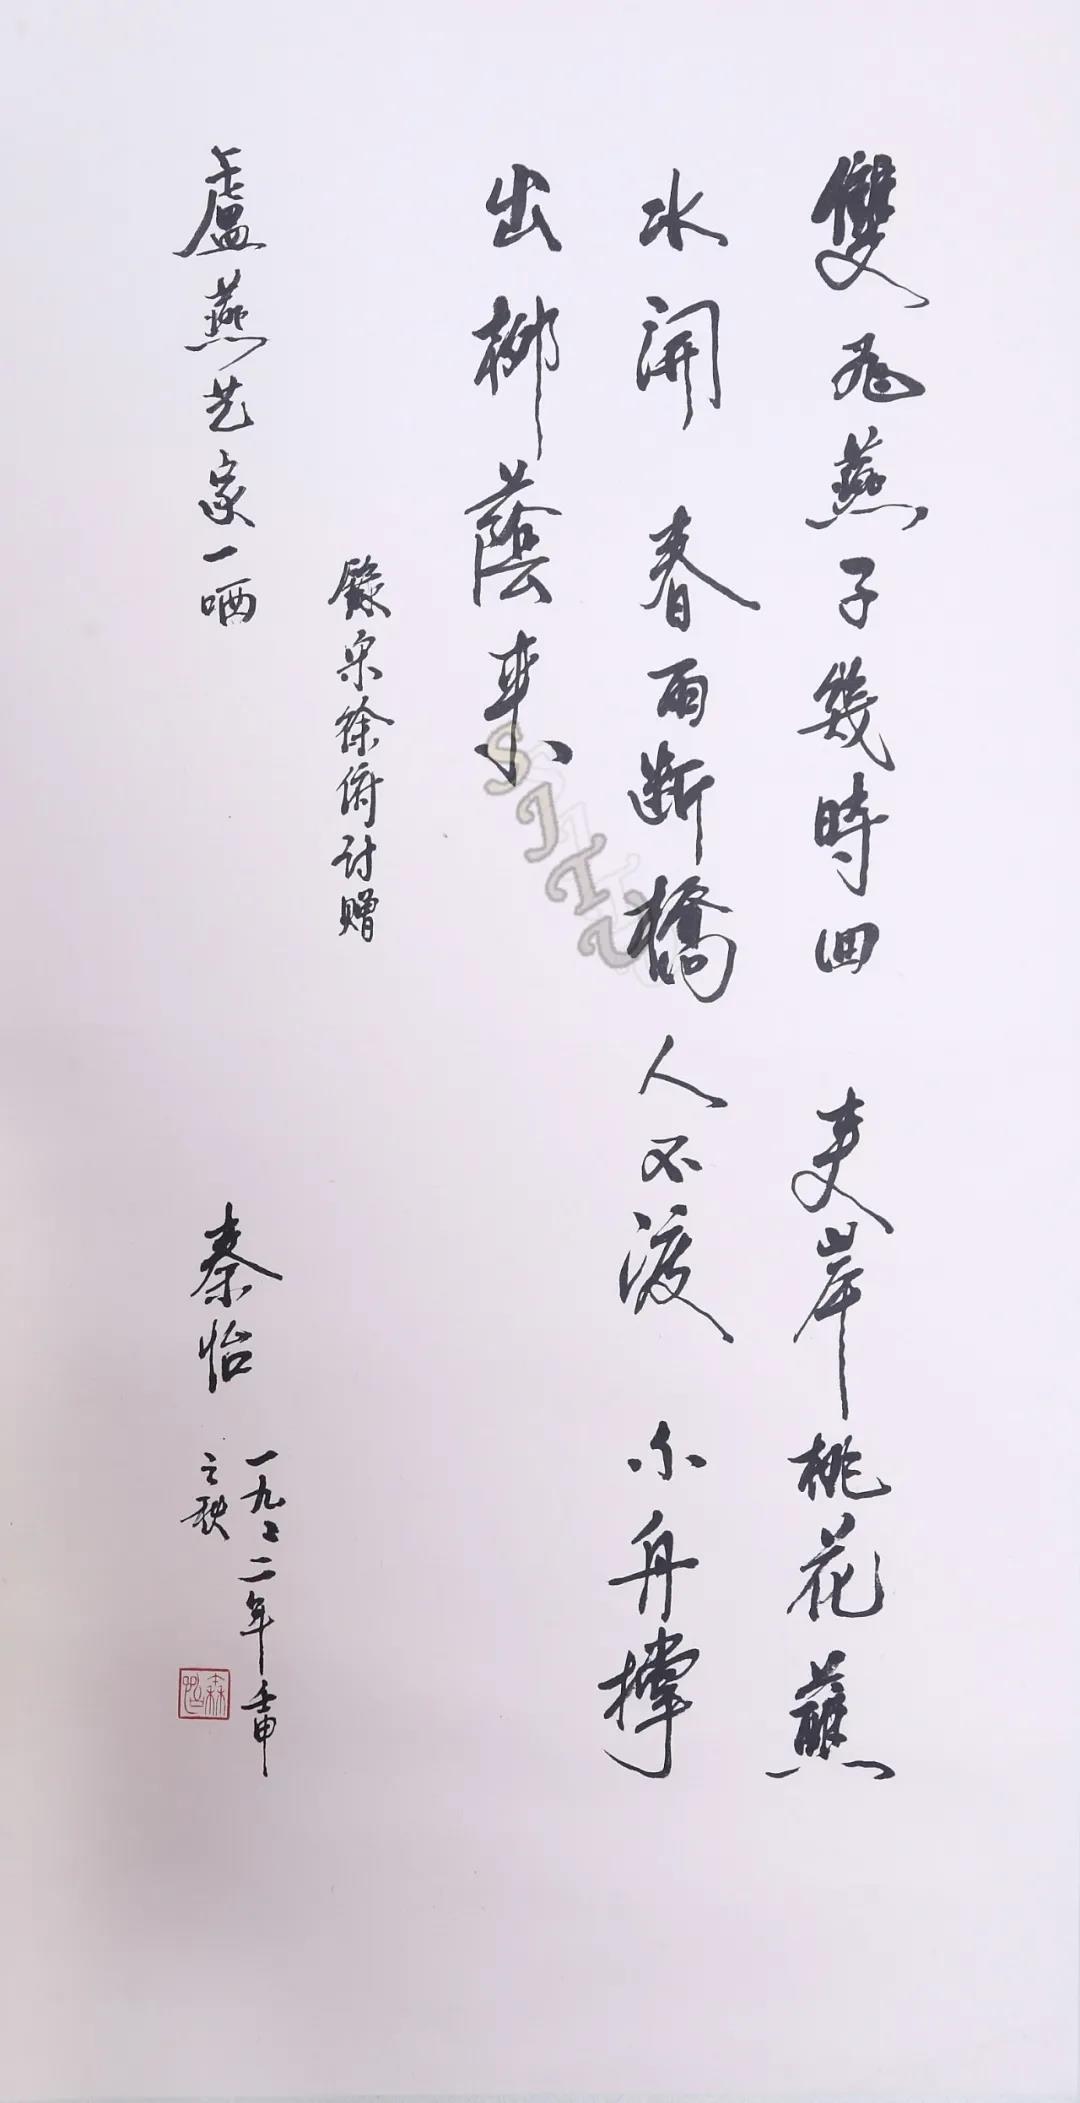 雙飛燕子幾時回 夾岸桃花蘸
水開 春雨断橋人不渡 小舟撑
出柳蔭來
錄宋徐俯诗赠
盧燕艺家一哂
秦怡
一九〻二年壬申
之秋
SJTU